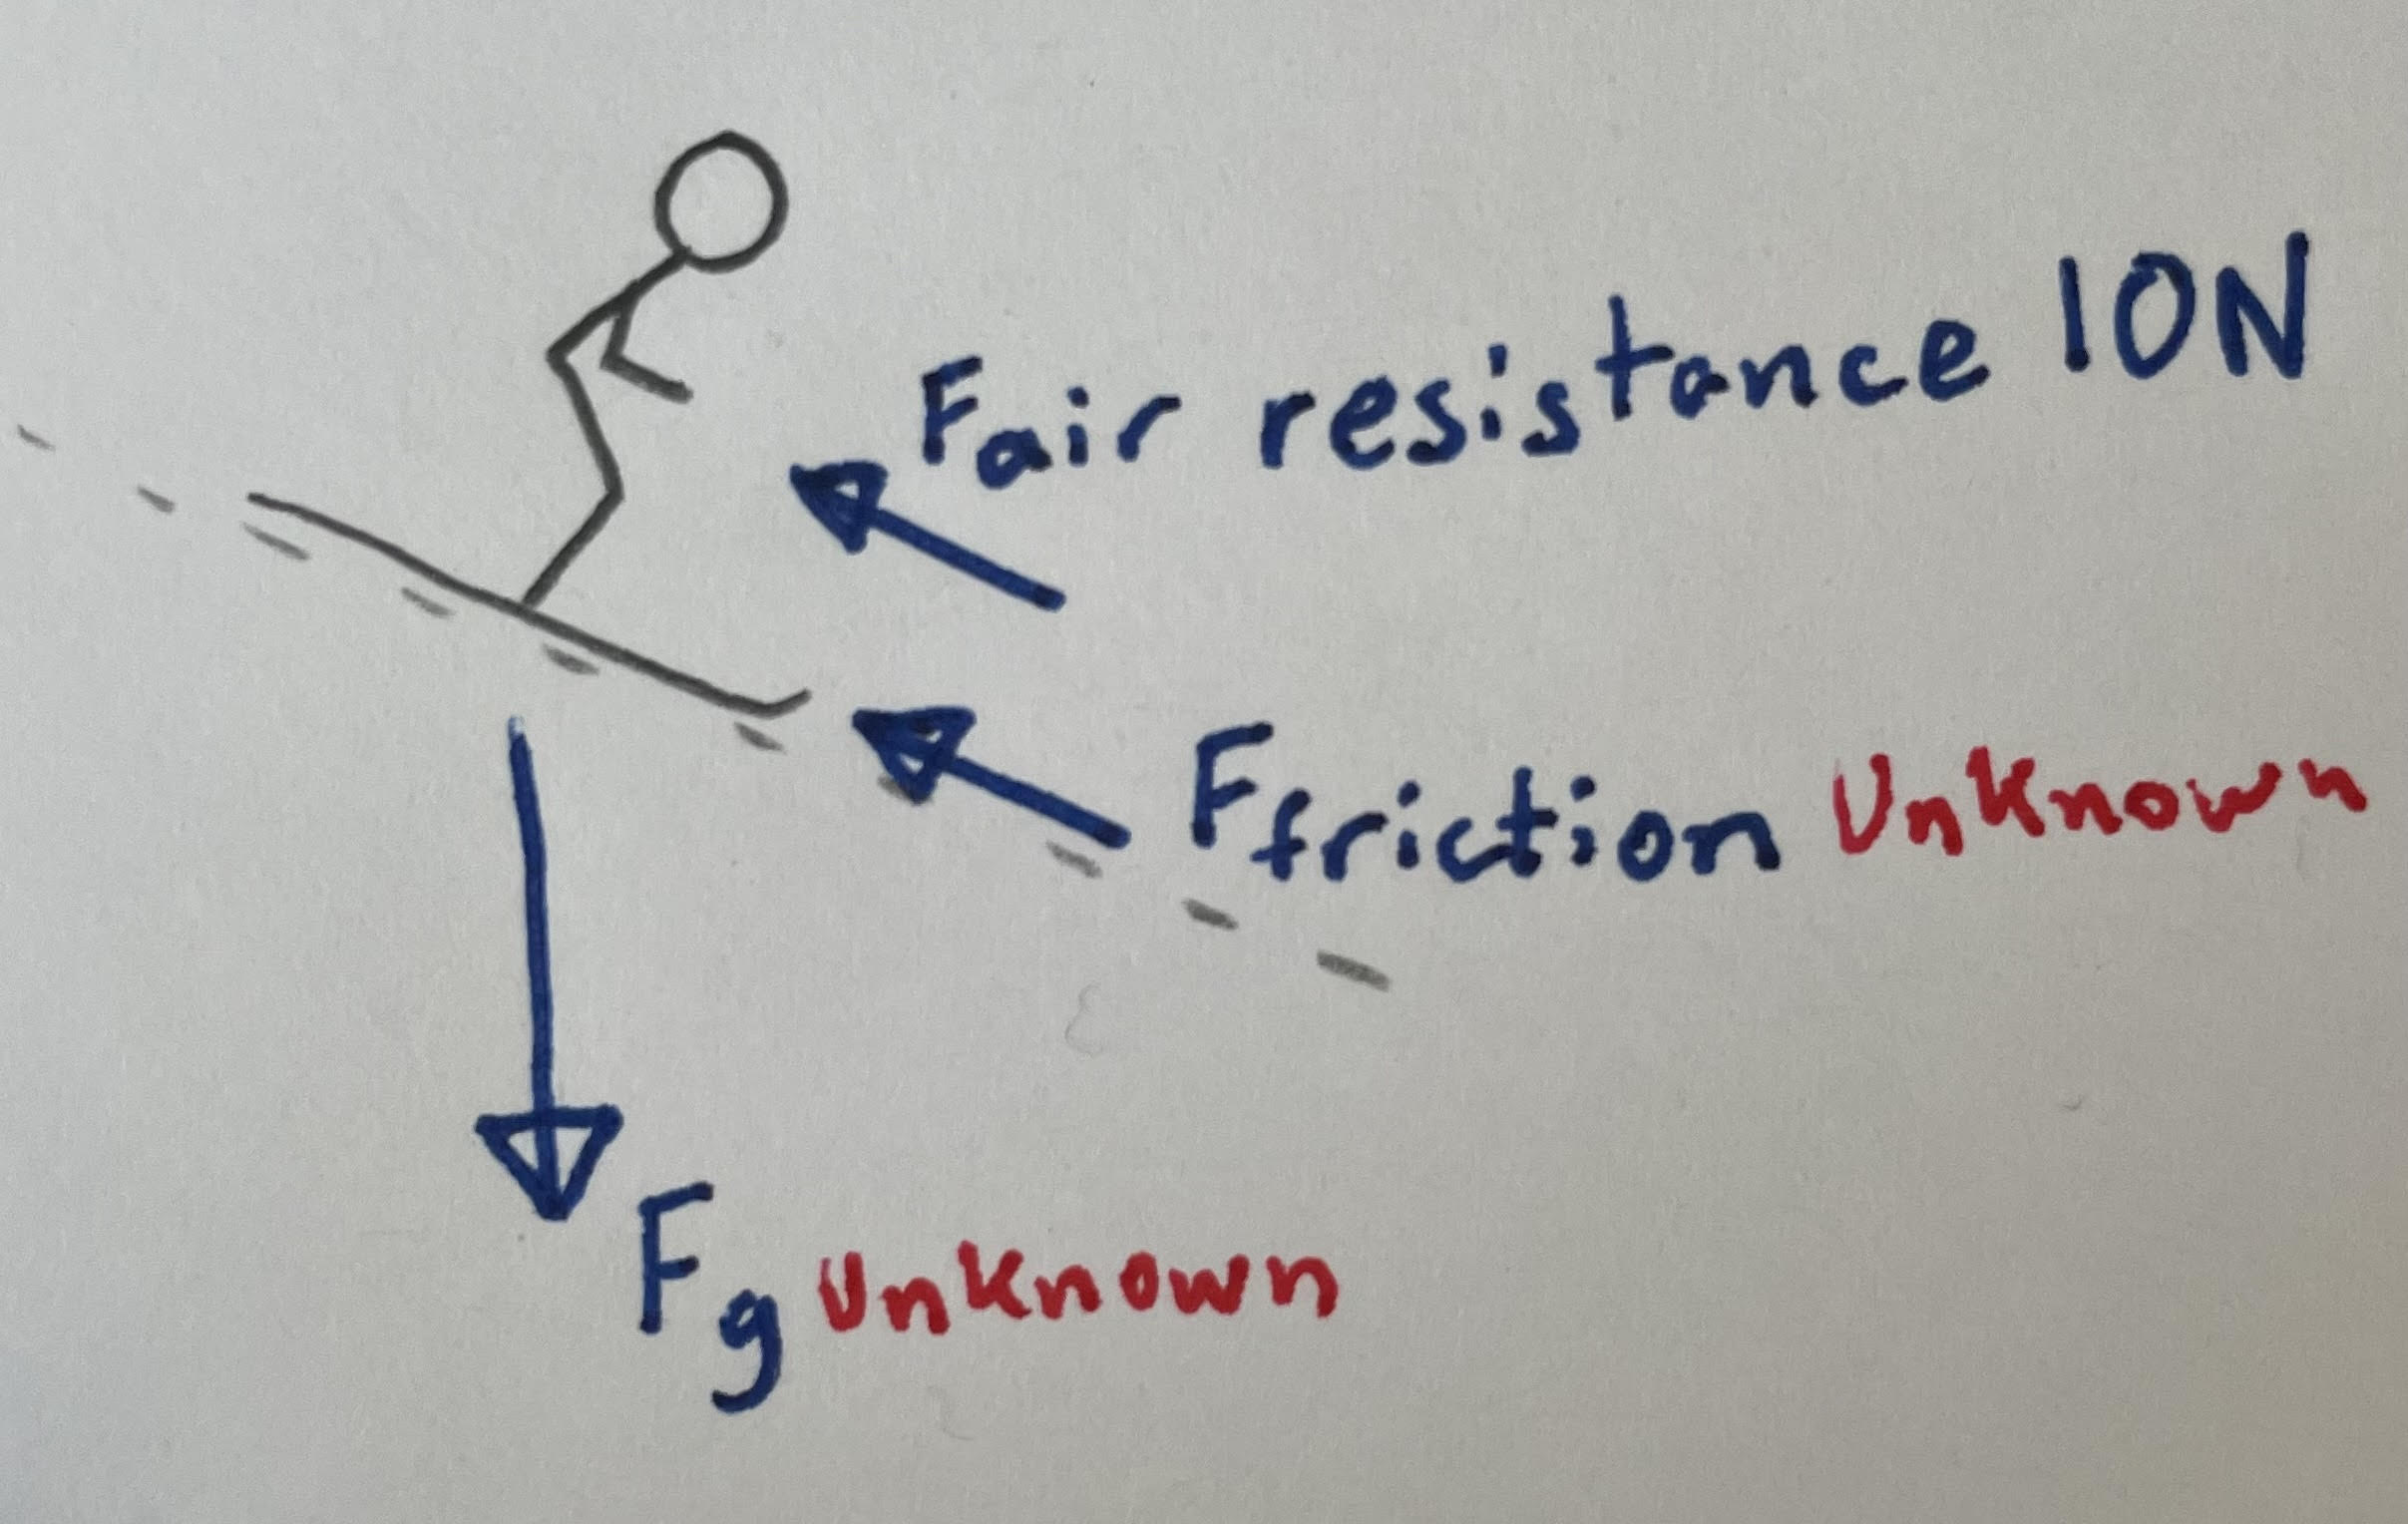 Fair resistance 10N
Ffriction Unknown
Fg Unknown